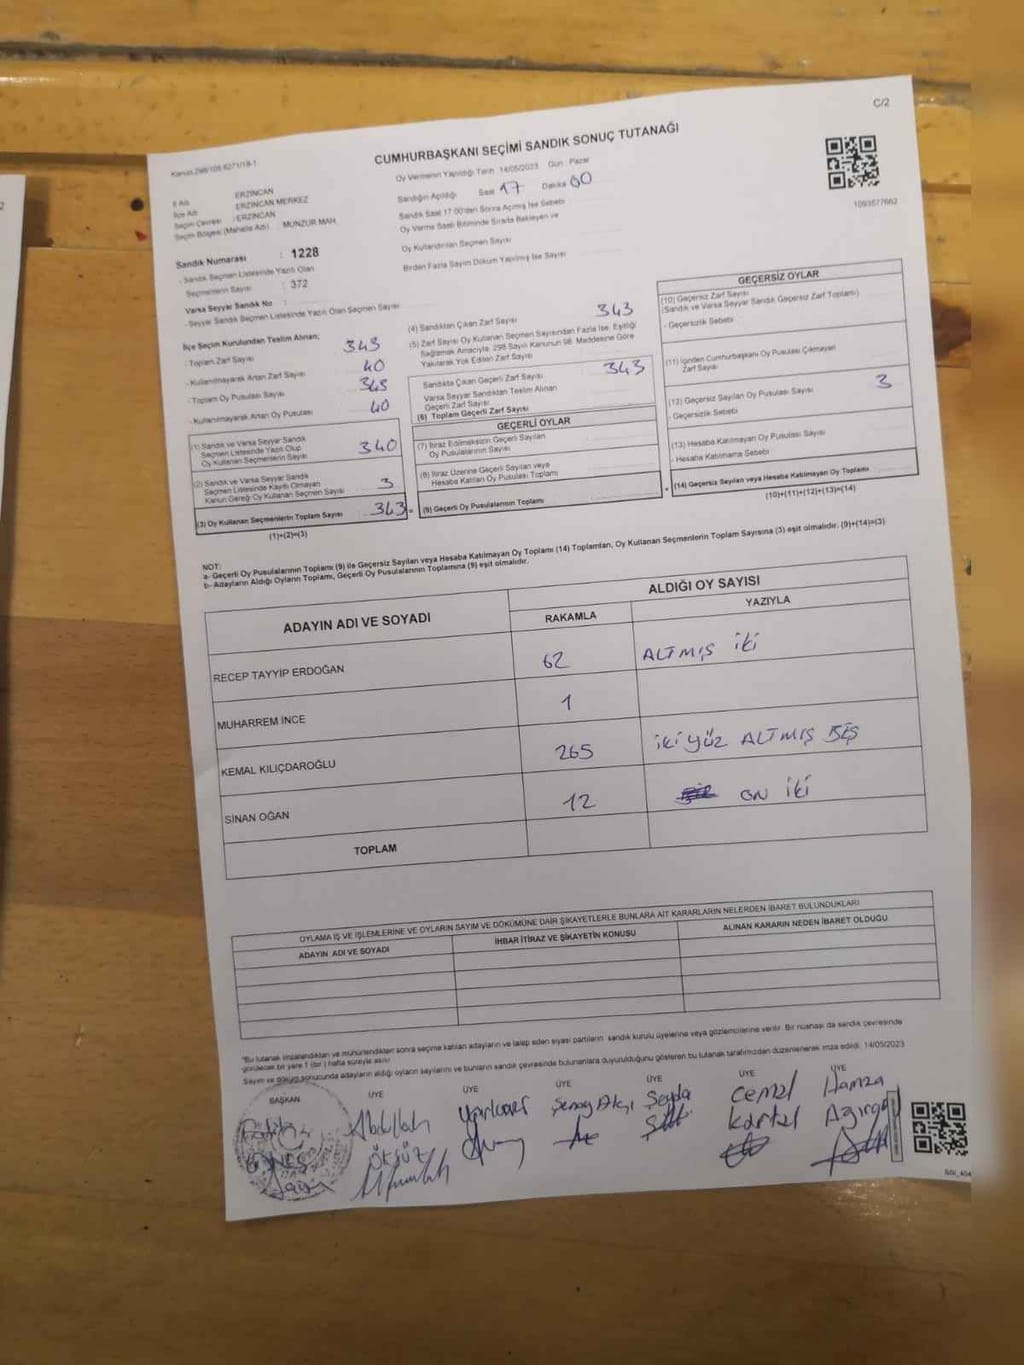 C/2
Kanun 298/105 6271/18-1
CUMHURBAŞKANI SEÇİMİ SANDIK SONUÇ TUTANAĞI
Oy Vermenin Yapıldığı Tarih 14/05/2023 Gün : Pazar
Sandığın Açıldığı Saat 17 Dakika 00
Sandık Saat 17:00'den Sonra Açılmış İse Sebebi
Oy Verme Saati Bitiminde Sırada Bekleyen ve
Oy Kullandırılan Seçmen Sayısı
Birden Fazla Sayım Döküm Yapılmış İse Sayısı
1093577662
İl Adı : ERZİNCAN
İlçe Adı : ERZİNCAN MERKEZ
Seçim Çevresi : ERZİNCAN
Seçim Bölgesi (Mahalle Adı) : MUNZUR MAH.
Sandık Numarası : 1228
- Sandık Seçmen Listesinde Yazılı Olan
Seçmenlerin Sayısı : 372
Varsa Seyyar Sandık No :
- Seyyar Sandık Seçmen Listesinde Yazılı Olan Seçmen Sayısı
İlçe Seçim Kurulundan Teslim Alınan;
- Toplam Zarf Sayısı
- Kullanılmayarak Artan Zarf Sayısı 40
- Toplam Oy Pusulası Sayısı
- Kullanılmayarak Artan Oy Pusulası 40
(1) Sandık ve Varsa Seyyar Sandık
Seçmen Listesinde Yazılı Olup
Oy Kullanan Seçmenlerin Sayısı 340
(2) Sandık ve Varsa Seyyar Sandık
Seçmen Listesinde Kayıtlı Olmayan
Kanun Gereği Oy Kullanan Seçmen Sayısı 3
(3) Oy Kullanan Seçmenlerin Toplam Sayısı 343
(1)+(2)=(3)
(4) Sandıktan Çıkan Zarf Sayısı 343
(5) Zarf Sayısı Oy Kullanan Seçmen Sayısından Fazla İse, Eşitliği
Sağlamak Amacıyla, 298 Sayılı Kanunun 98. Maddesine Göre
Yakılarak Yok Edilen Zarf Sayısı
Sandıkta Çıkan Geçerli Zarf Sayısı 343
Varsa Seyyar Sandıktan Teslim Alınan
Geçerli Zarf Sayısı
(6) Toplam Geçerli Zarf Sayısı
GEÇERLİ OYLAR
(7) İtiraz Edilmeksizin Geçerli Sayılan
Oy Pusulalarının Sayısı
(8) İtiraz Üzerine Geçerli Sayılan veya
Hesaba Katılan Oy Pusulası Toplamı
= (9) Geçerli Oy Pusulalarının Toplamı
GEÇERSİZ OYLAR
(10) Geçersiz Zarf Sayısı
(Sandık ve Varsa Seyyar Sandık Geçersiz Zarf Toplamı)
- Geçersizlik Sebebi
(11) İçinden Cumhurbaşkanı Oy Pusulası Çıkmayan
Zarf Sayısı
(12) Geçersiz Sayılan Oy Pusulası Sayısı 3
- Geçersizlik Sebebi
(13) Hesaba Katılmayan Oy Pusulası Sayısı
- Hesaba Katılmama Sebebi
+ (14) Geçersiz Sayılan veya Hesaba Katılmayan Oy Toplamı
(10)+(11)+(12)+(13)=(14)
NOT:
a- Geçerli Oy Pusulalarının Toplamı (9) ile Geçersiz Sayılan veya Hesaba Katılmayan Oy Toplamı (14) Toplamları, Oy Kullanan Seçmenlerin Toplam Sayısına (3) eşit olmalıdır. (9)+(14)=(3)
b- Adayların Aldığı Oyların Toplamı, Geçerli Oy Pusulalarının Toplamına (9) eşit olmalıdır.
ADAYIN ADI VE SOYADI ALDIĞI OY SAYISI
RAKAMLA YAZIYLA
RECEP TAYYİP ERDOĞAN 62 ALTMIŞ İKİ
MUHARREM İNCE 1
KEMAL KILIÇDAROĞLU 265 İKİ YÜZ ALTMIŞ BEŞ
SİNAN OĞAN 12 ON İKİ
TOPLAM
OYLAMA İŞ VE İŞLEMLERİNE VE OYLARIN SAYIM VE DÖKÜMÜNE DAİR ŞİKAYETLERLE BUNLARA AİT KARARLARIN NELERDEN İBARET BULUNDUKLARI
ADAYIN ADI VE SOYADI İHBAR İTİRAZ VE ŞİKAYETİN KONUSU ALINAN KARARIN NEDEN İBARET OLDUĞU
"Bu tutanak imzalandıktan ve mühürlendikten sonra seçime katılan adayların ve talep eden siyasi partilerin sandık kurulu üyelerine veya gözlemcilerine verilir. Bir nushası da sandık çevresinde
görülecek bir yere 1 (bir) hafta süreyle asılır.
Sayım ve döküm sonucunda adayların aldığı oyların sayılarını ve bunların sandık çevresinde bulunanlara duyurulduğunu gösteren bu tutanak tarafımızdan düzenlenerek imza edildi. 14/05/2023
BAŞKAN ÜYE ÜYE ÜYE ÜYE ÜYE ÜYE
Abdullah Şenay Akçı Şeyda Cemal Hamza
GÜNEŞ ÖKSÜZ Kartal